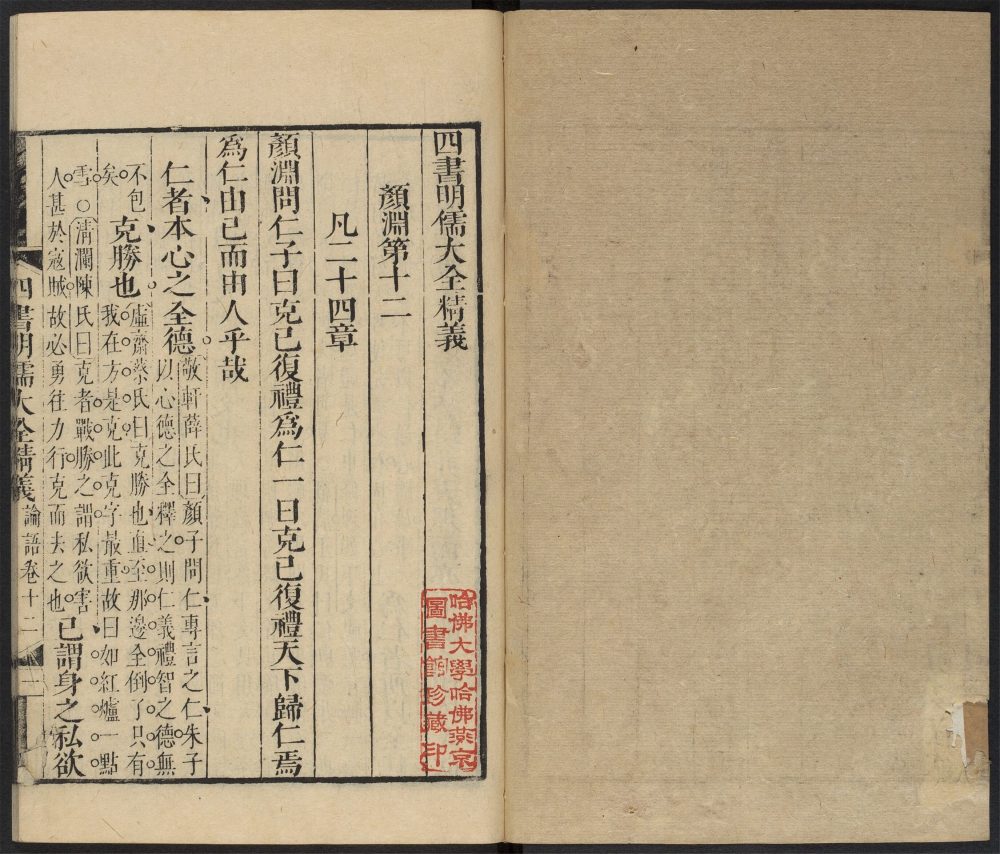 四書明儒大全精義
顏淵第十二
凡二十四章
顏淵問仁子曰克己復禮爲仁一日克己復禮天下歸仁焉
爲仁由己而由人乎哉
仁者本心之全德
敬軒薛氏曰顏子問仁專言之仁朱子
以心德之全釋之則仁義禮智之德無
不包
矣
克勝也
虛齋蔡氏曰克勝也直至那邊全倒了只有
我在方是克此克字最重故曰如紅爐一點
雪○清瀾陳氏曰克者戰勝之謂私欲害
人甚於寇賊故必勇往力行克而去之也
己謂身之私欲
四書明儒大全精義 論語卷十二 一
哈佛大學哈佛燕京
圖書館珍藏印